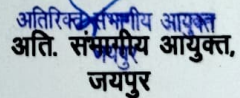 अतिरिक्त संभागीय आयुक्त
अति. संभागीय आयुक्त,
जयपुर
जयपुर